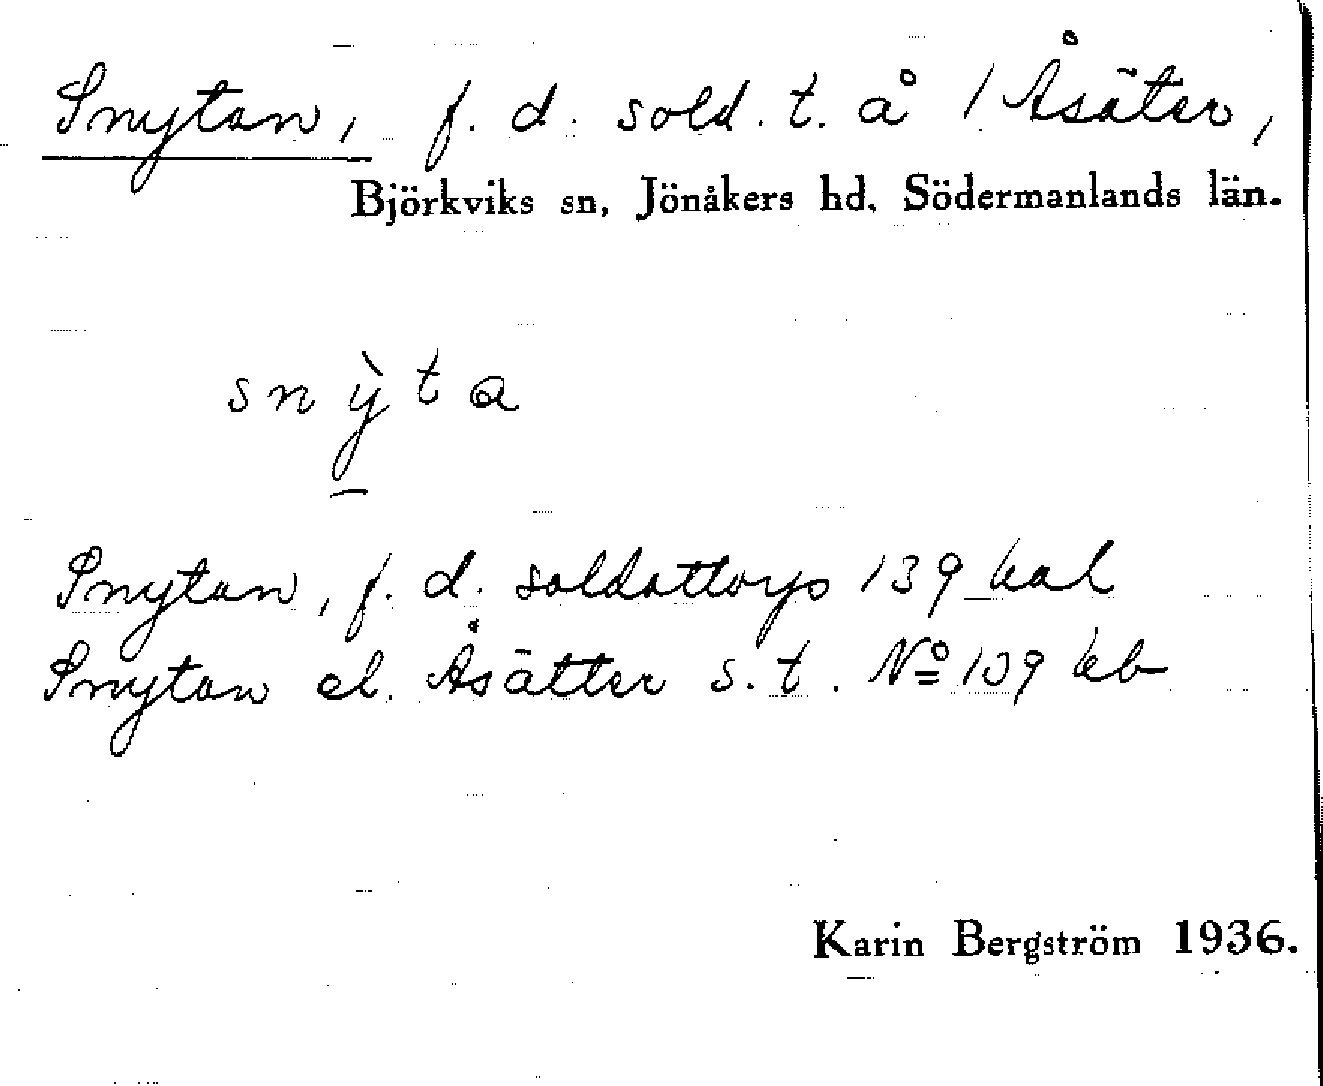 Snytan, f. d. sold. t. å 1 Åsäter,
Björkviks sn, Jönåkers hd. Södermanlands län.
snỳta
Snytan, f. d. soldattorp 139 kal
Snytan el. Åsätter s. t. Nº 109 kb
Karin Bergström 1936.